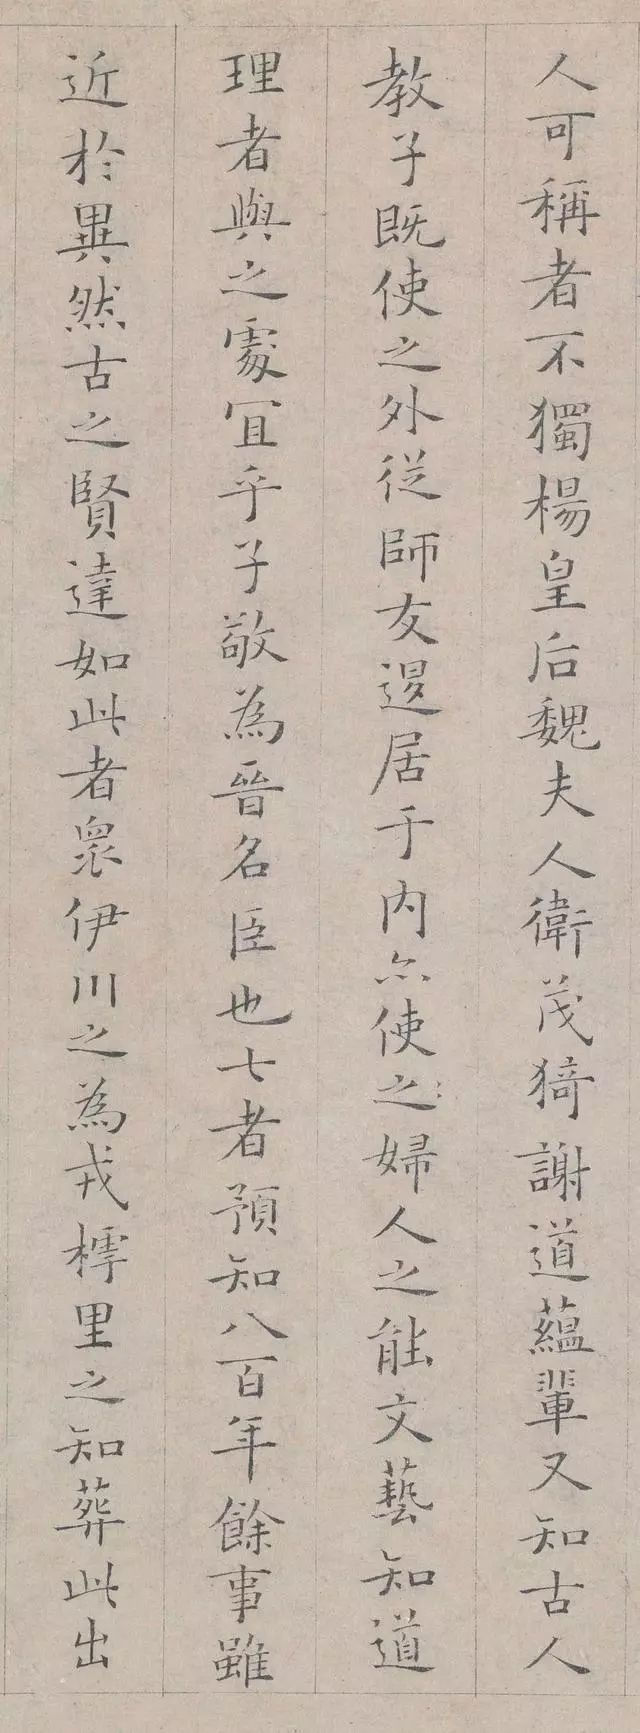 人可稱者不獨楊皇后魏夫人衛茂猗謝道蘊輩又知古人
教子既使之外從師友退居于内亦使之婦人之能文藝知道
理者與之處宜乎子敬為晉名臣也七者預知八百年餘事雖
近於異然古之賢達如此者衆伊川之為戎樗里之知葬此出